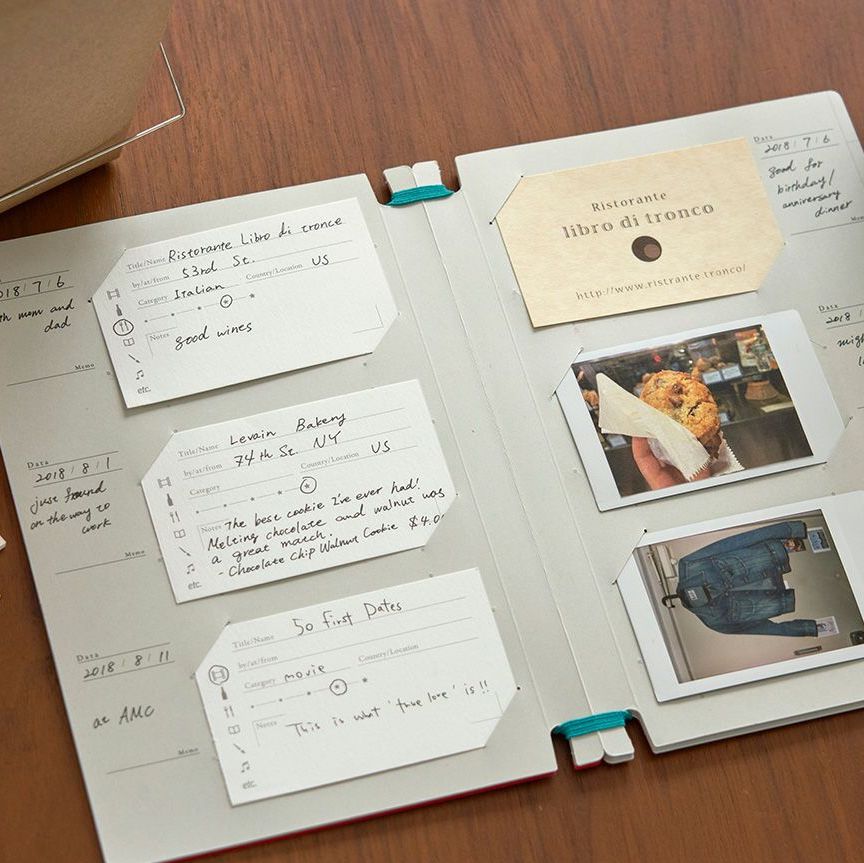 018 / 7 / 6
th mom and
dad
Memo
Title/Name Ristorante Libro di tronce
by/at/from 53rd St.
Country/Location US
Category Italian
Notes good wines
etc.
Data
2018 / 8 / 1
just found
on the way to
work
Memo
Title/Name Levain Bakery
by/at/from 74th St. NY
Country/Location US
Category
Notes The best cookie I've ever had!
Melting chocolate and walnut was
a great match.
- Chocolate Chip Walnut Cookie $4.0
etc.
Data
2018 / 8 / 11
at AMC
Memo
Title/Name 50 First Dates
by/at/from
Country/Location
Category movie
Notes This is what 'true love' is!!
etc.
Ristorante
libro di tronco
http://www.ristrante.tronco/
Data
2018 / 7 / 6
good for
birthday/
anniversary
dinner
Data
2018 /